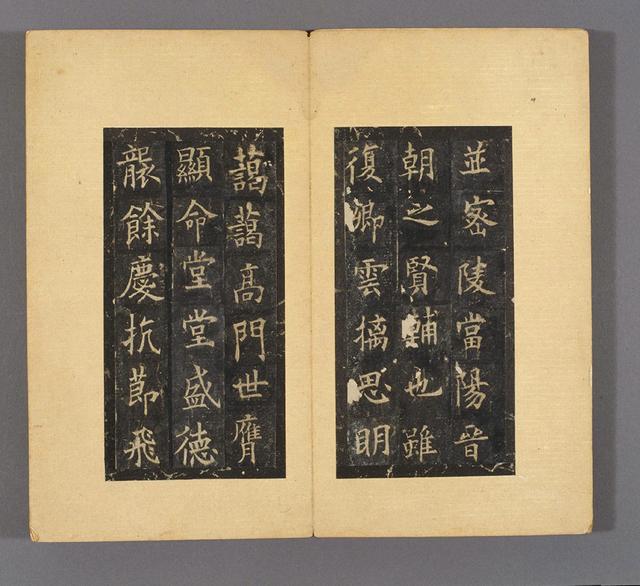 並密陵當陽晉
朝之賢輔也雖
復卿雲摛思明
藹藹高門世膺
顯命堂堂盛德
襲餘慶抗節飛